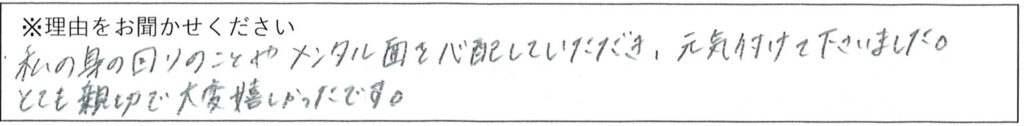 ※理由をお聞かせください
私の身の回りのことやメンタル面を心配していただき、元気付けて下さいました。
とても親切で大変嬉しかったです。